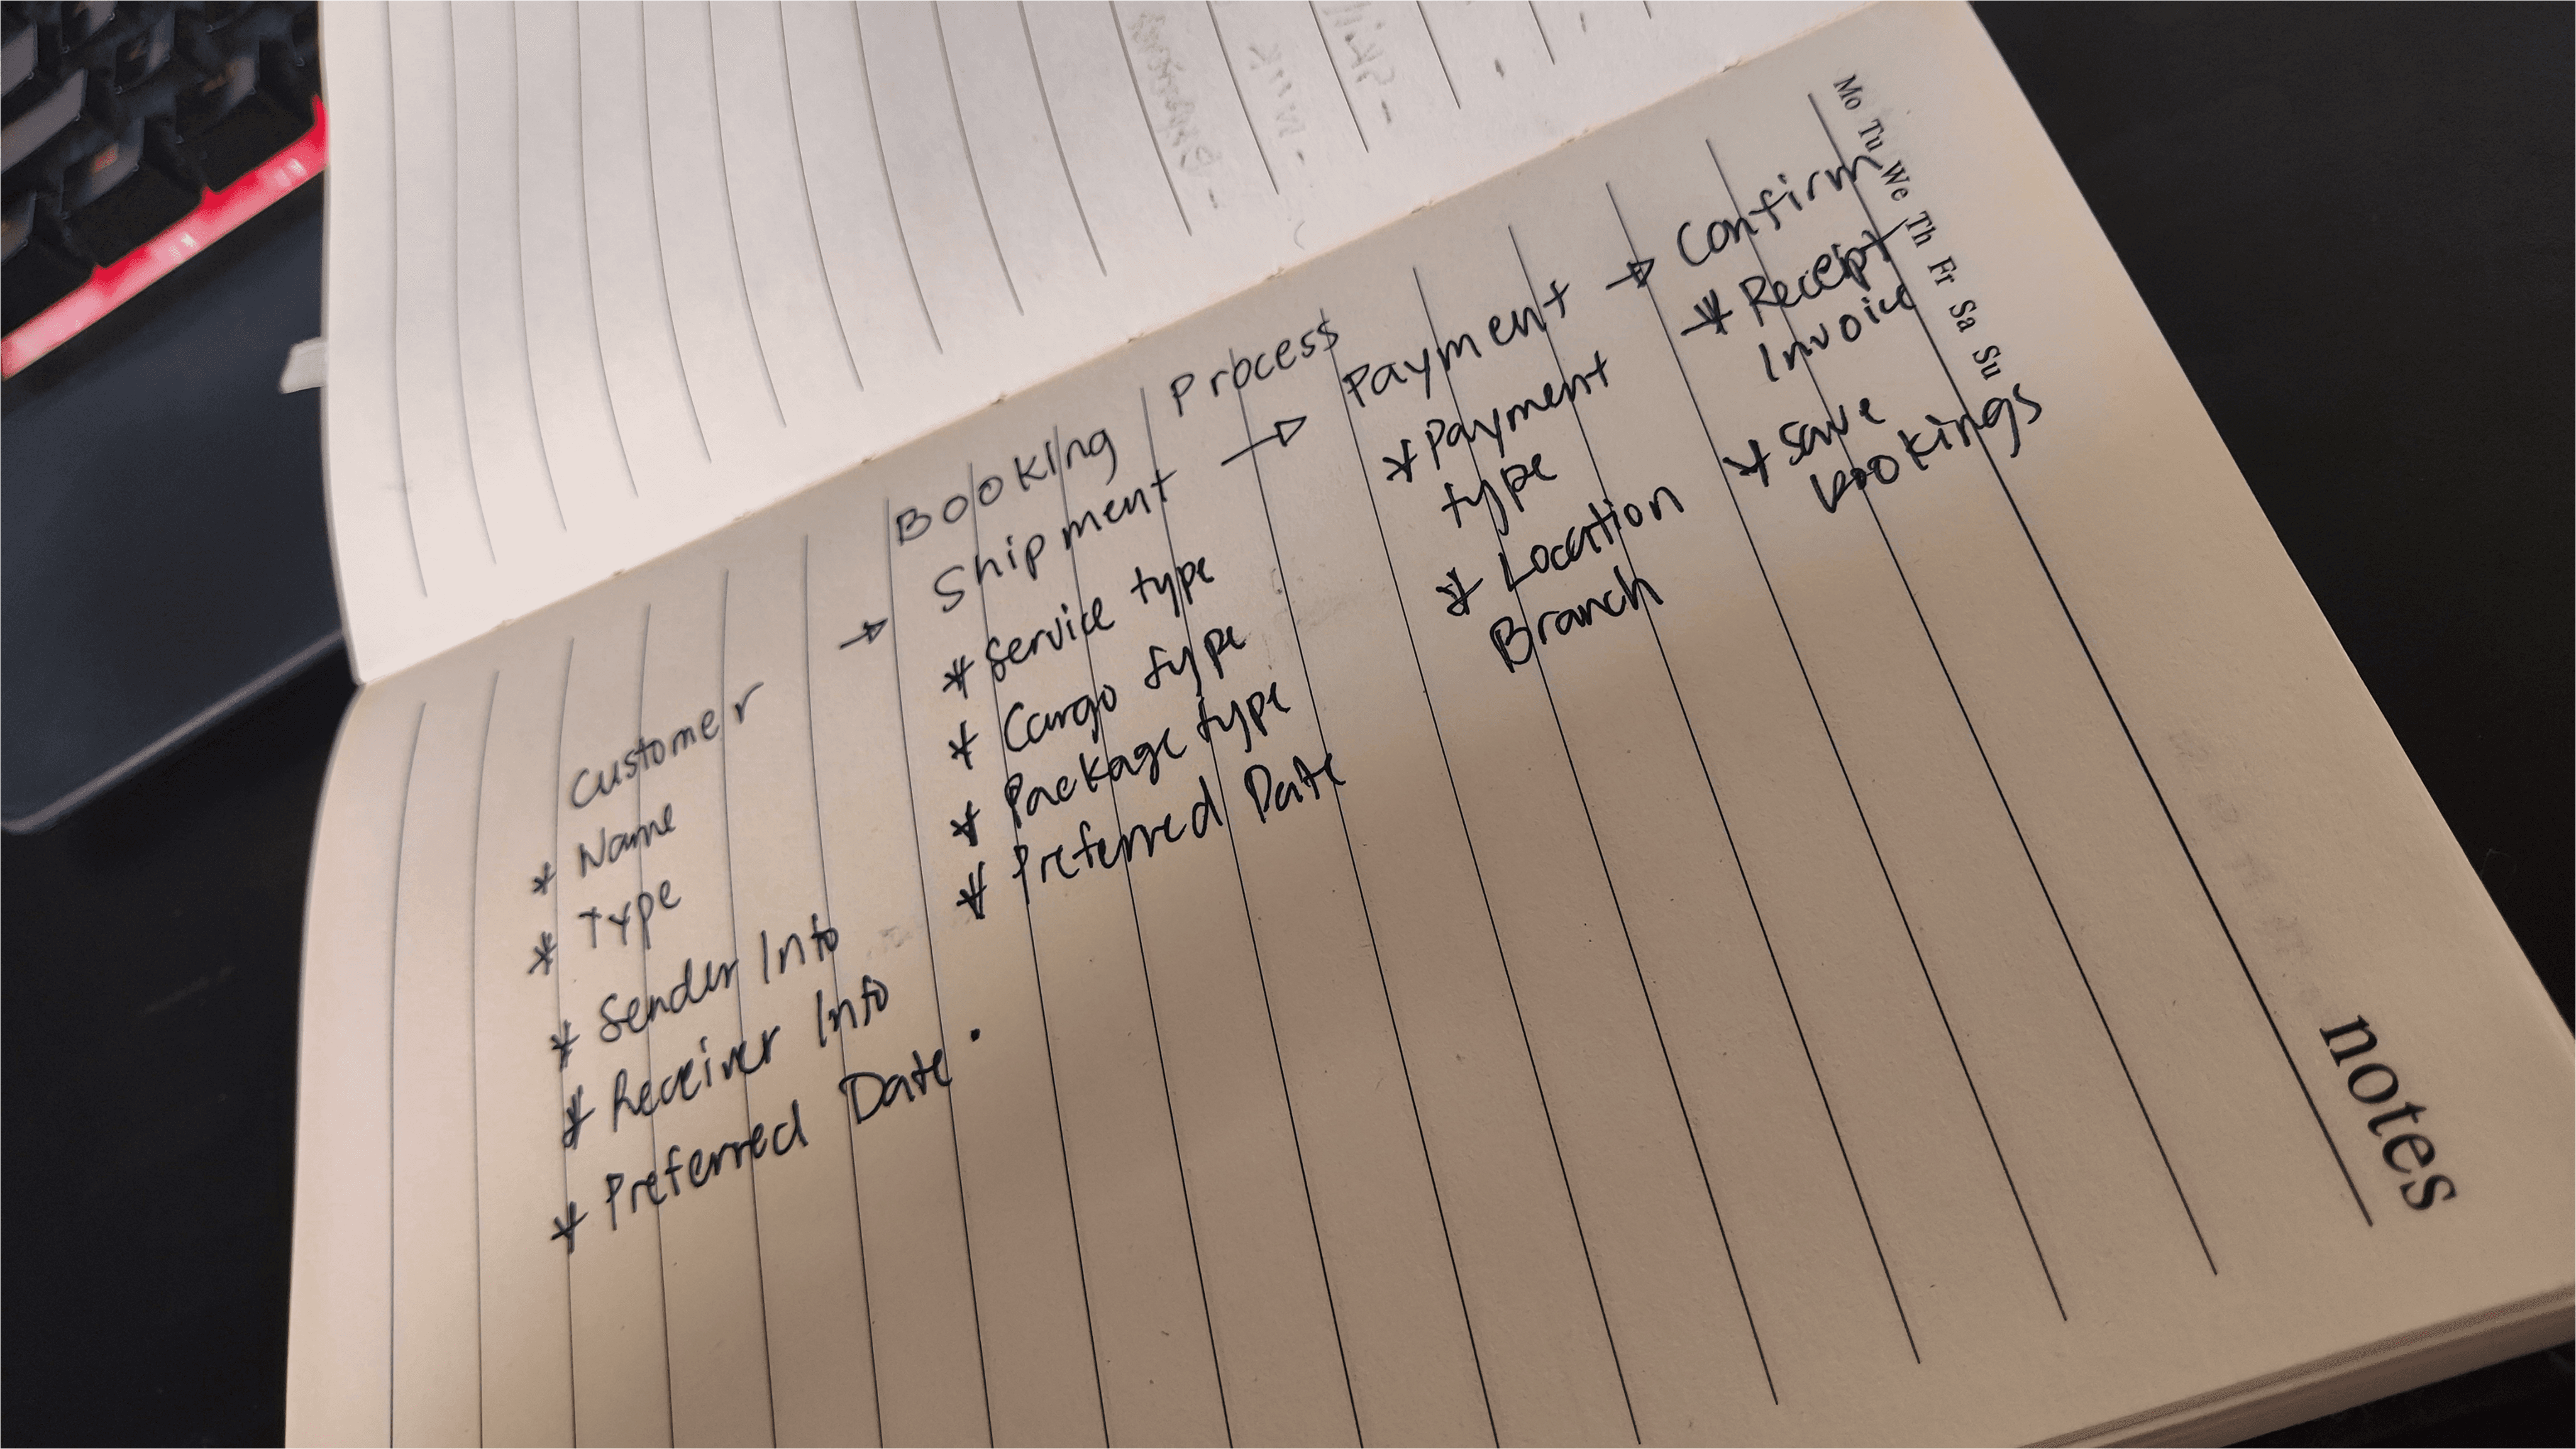 Booking Process
Customer → Shipment → Payment → Confirm
* Name
* Type
* Sender Info
* Receiver Info
* Preferred Date.
* Service type
* Cargo type
* Package type
* Preferred Date
* Payment
type
* Location
Branch
* Receipt
Invoice
* Save
bookings
Mo Tu We Th Fr Sa Su
notes